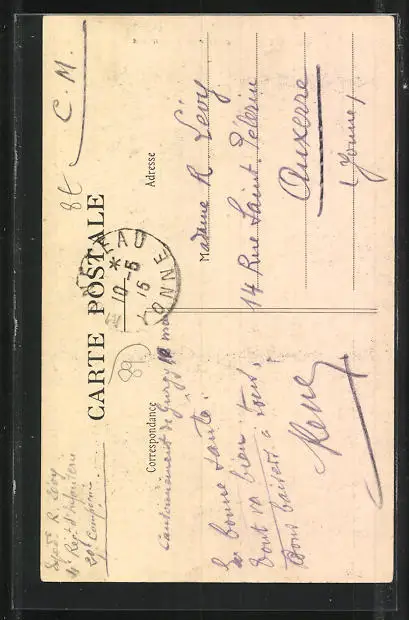 Expédr R. Lévy
4e Régt d'infanterie
29e Compagnie
CARTE POSTALE
8t C. M.
Correspondance
Adresse
EAU
* 10 - 5
15
YONNE
Cantonnement de Gurgy 10 mai
En bonne santé.
Tout va bien.
Bons baisers à tous,
René
Madame R Lévy
14 Rue Saint Pèlerin
Auxerre
(Yonne)